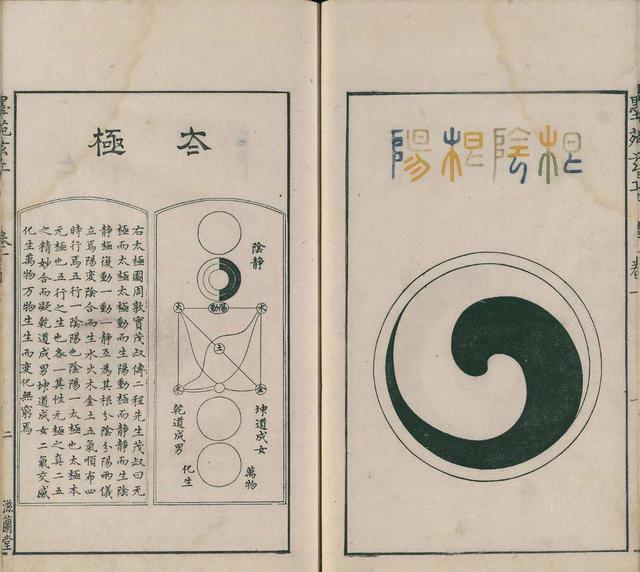 根陰根陽
太極
陰靜
陽動
火
水
土
木
金
坤道成女
乾道成男
萬物
化生
右太極圖周敦實茂叔傳二程先生茂叔曰无
極而太極太極動而生陽動極而靜靜而生陰
靜極復動一動一靜互為其根分陰分陽兩儀
立焉陽変陰合而生水火木金土五氣順布四
時行焉五行一陰陽也陰陽一太極也太極本
无極也五行之生也各一其性无極之真二五
之精妙合而凝乾道成男坤道成女二氣交感
化生萬物万物生生而変化無窮焉
二
滋蘭堂